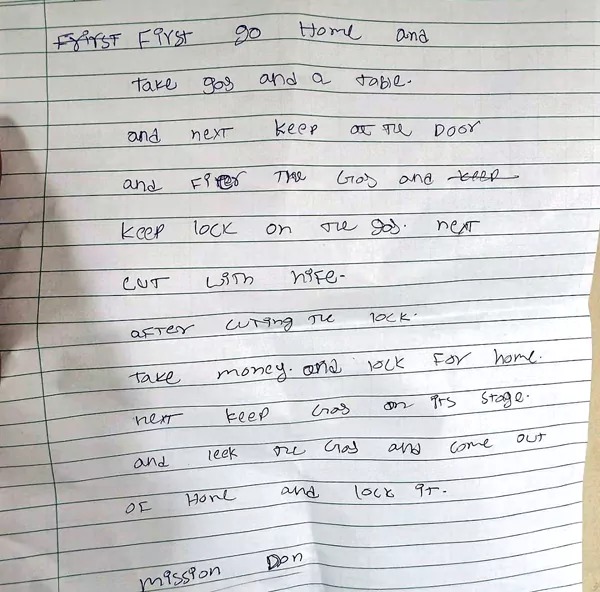 First First go Home and
Take gas and a table.
and next keep at the Door
and Firer The Gas and keep
keep lock on the gas. next
cut with nife.
after cuting the lock.
Take money. and lock for home.
next keep Gas on its stage.
and leek the Gas and come out
of Home and lock it.
mission Don